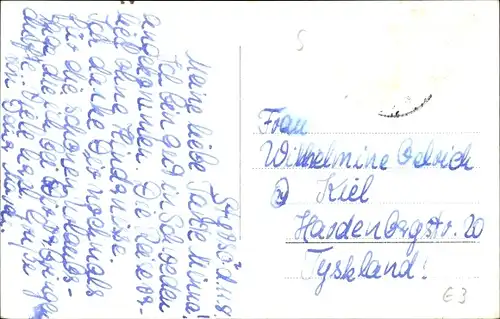 Bryssö d. 11.8.
Meine liebe Tante Minna!
Ich bin gut in Schweden
angekommen. Die Reise ver-
lief ohne Hindernisse.
Ich danke Dir nochmals
für die schönen Urlaubs-
tage die ich bei Dir verbringen
durfte. Viele herzl. Grüße
von Deine
Frau
Wilhelmine Oelrich
Kiel
Hardenbergstr. 20
Tyskland!
5
€3